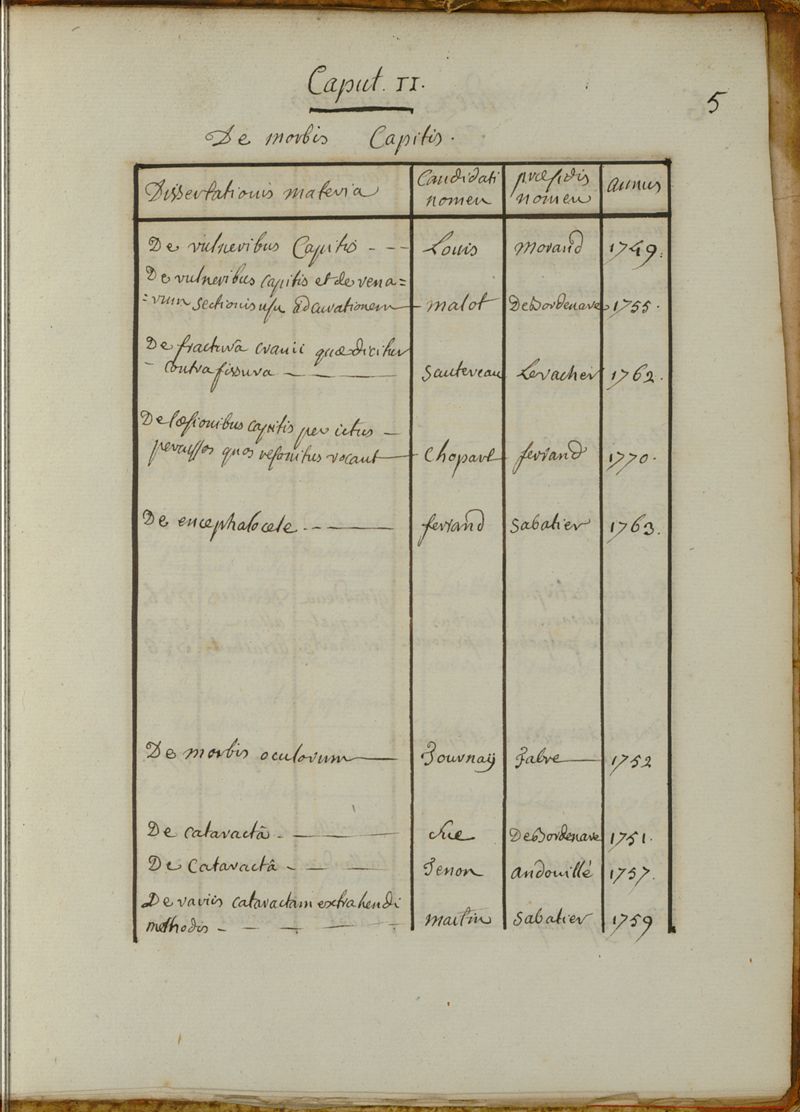 Caput. II.
5
De morbis Capitis.
Dissertationis materia Candidati nomen præsidis nomen annus
De vulneribus Capitis - - - Louis Morand 1749.
De vulneribus capitis et de vena=
=rum sectionis usu ad curationem — malot DeBordenave 1755.
De fracturâ cranii quæ dicitur
contrafissura — — — Sauteveau Levacher 1762.
De læsionibus capitis per ictus —
percussos quos resonitus vocant — Chopart ferrand 1770.
De encephalocele - — — — ferrand Sabatier 1763.
De morbis oculorum — Journaÿ Fabre — 1752
De cataractâ - — — — Sue DeBordenave 1751.
De Cataractâ - — — Tenon andouillé 1757.
De variis cataractam extrahendi
methodis - — - — — - martin Sabatier 1759